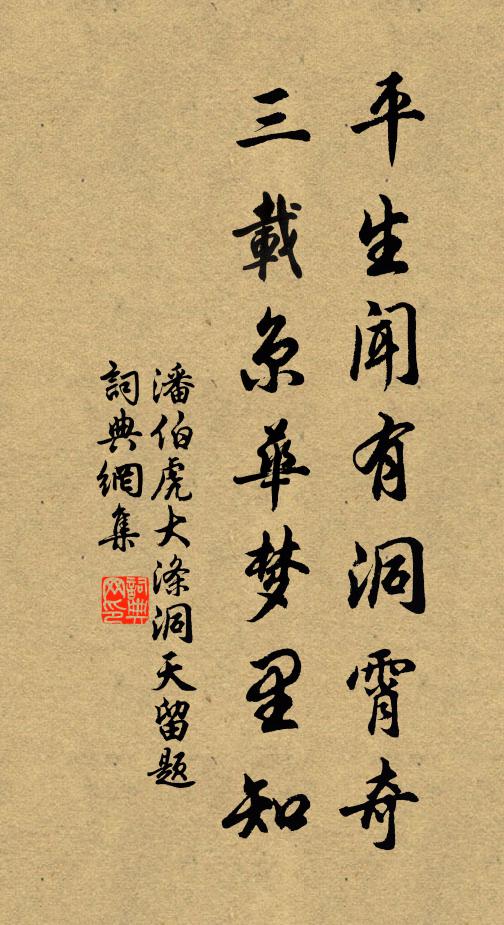 平生闻有洞霄奇
三載京華梦里知
潘伯虎大涤洞天留题
詞典網集
詞典网印